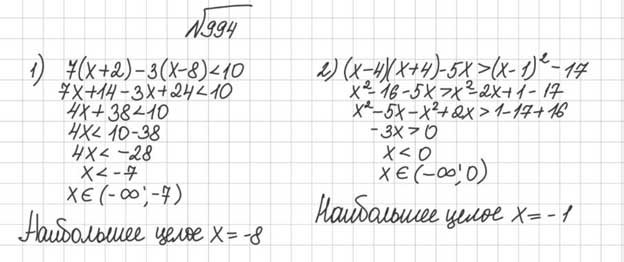 №994
1) 7(x+2)-3(x-8)<10
7x+14-3x+24<10
4x+38<10
4x<10-38
4x<-28
x<-7
x∈(-∞;-7)
Наибольшее целое x=-8
2) (x-4)(x+4)-5x>(x-1)²-17
x²-16-5x>x²-2x+1-17
x²-5x-x²+2x>1-17+16
-3x>0
x<0
x∈(-∞;0)
Наибольшее целое x=-1